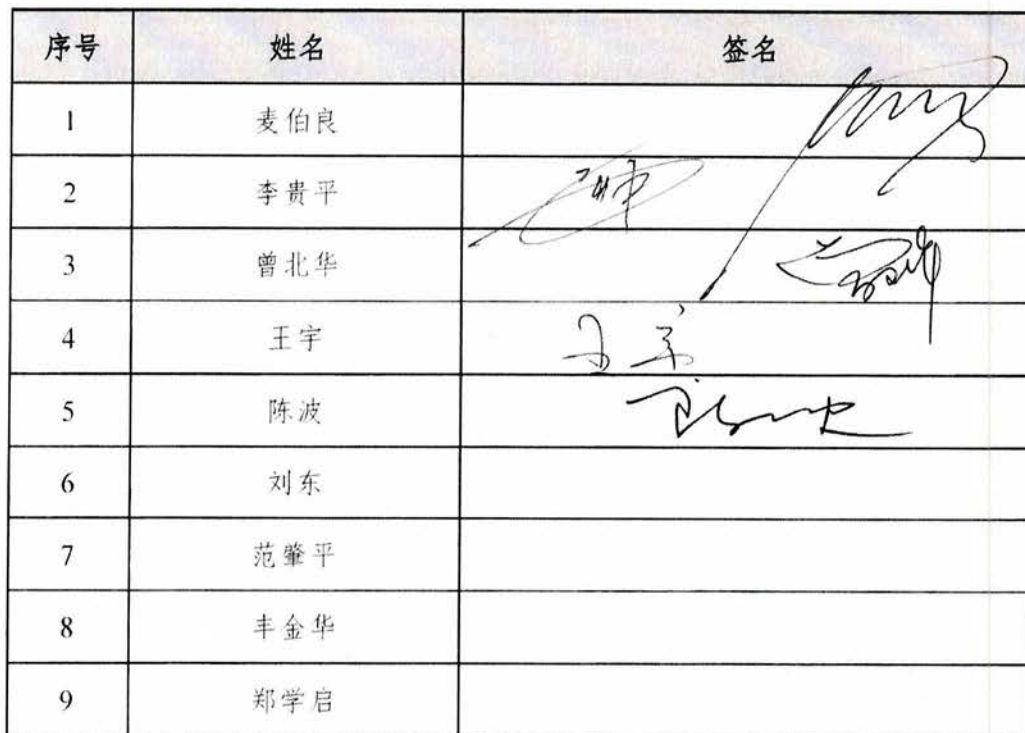 序号 姓名 签名
1 麦伯良
2 李贵平
3 曾北华
4 王宇 王宇
5 陈波
6 刘东
7 范肇平
8 丰金华
9 郑学启